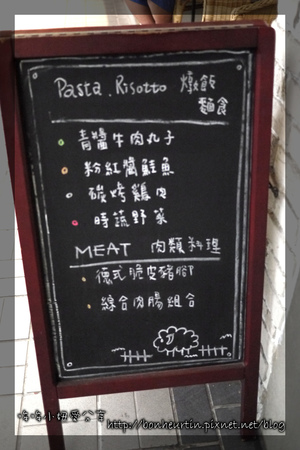 Pasta. Risotto 燉飯
麵食
青醬牛肉丸子
粉紅醬鮭魚
碳烤雞肉
時蔬野菜
MEAT 肉類料理
德式脆皮豬腳
綜合肉腸組合
哈哈小妞愛分享
http://bonheurtin.pixnet.net/blog